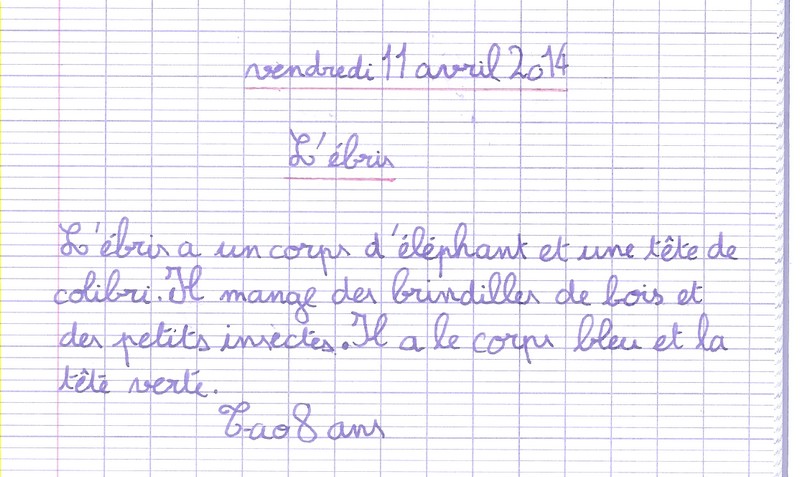 vendredi 11 avril 2014
L'ébris
L'ébris a un corps d'éléphant et une tête de
colibri. Il mange des brindilles de bois et
des petits insectes. Il a le corps bleu et la
tête verte.
Tao 8 ans